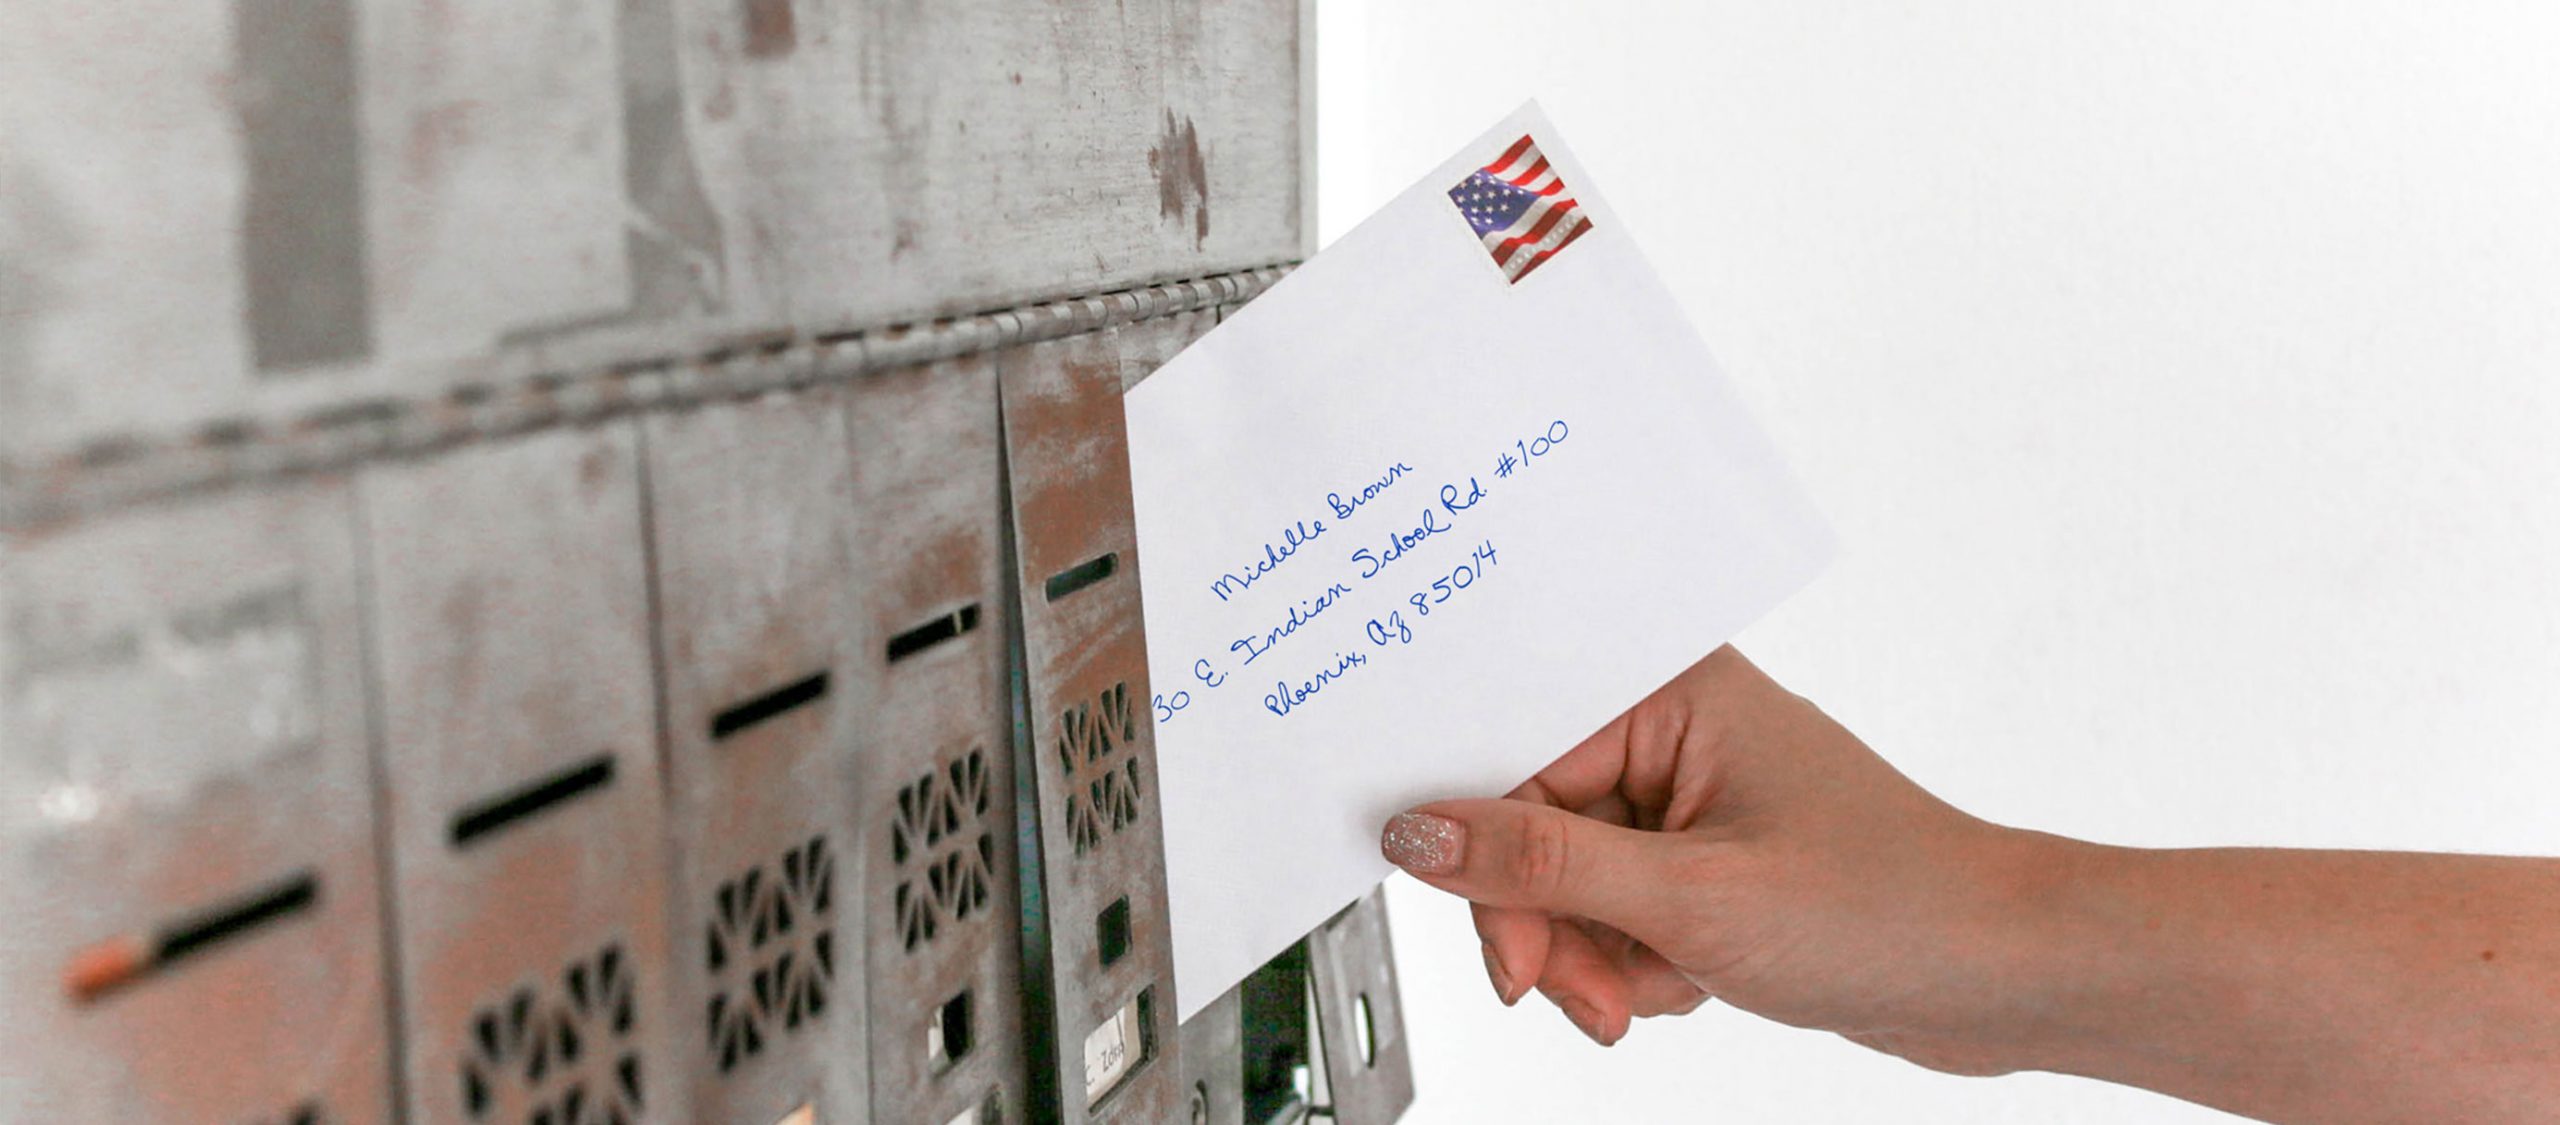 Michelle Brown
30 E. Indian School Rd. #100
Phoenix, Az 85014